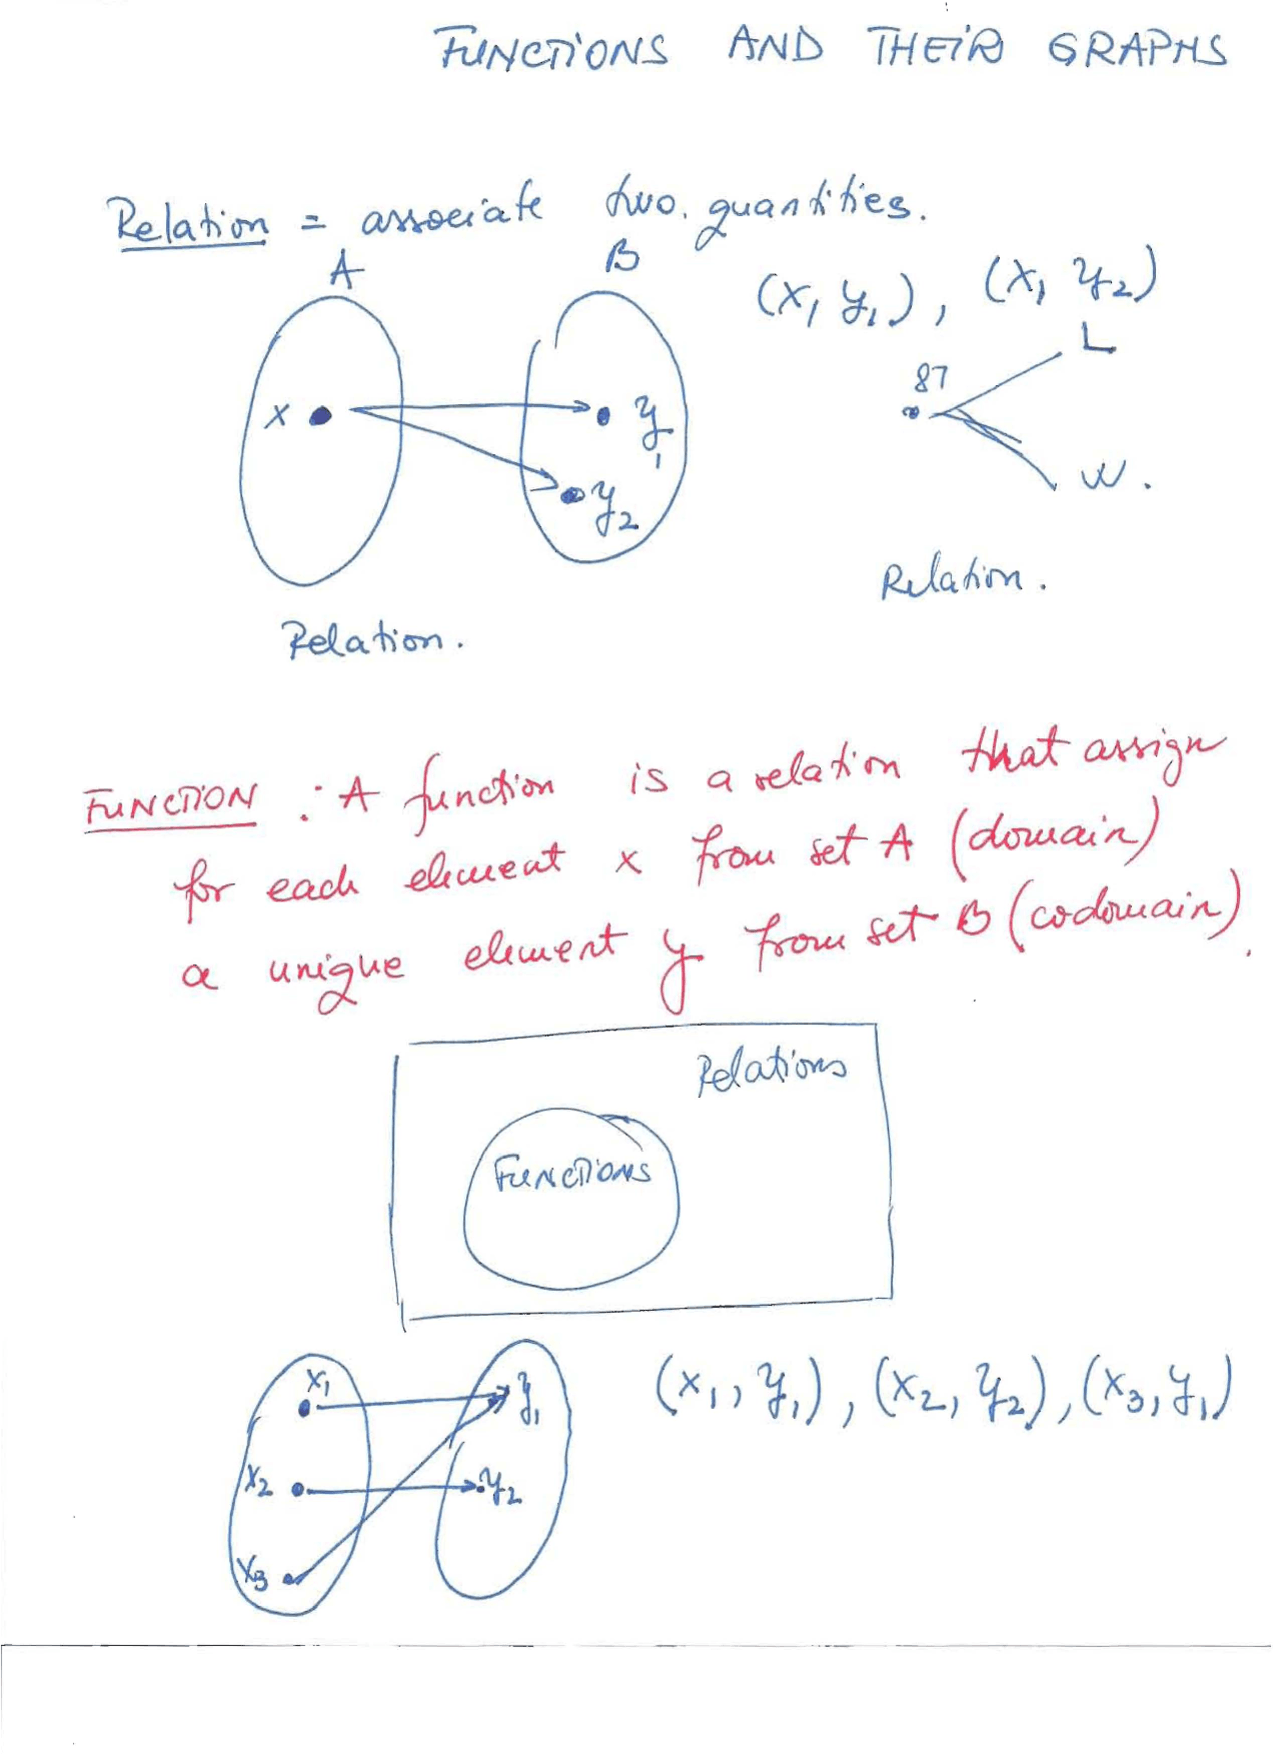 FUNCTIONS AND THEIR GRAPHS
Relation = associate two quantities.
A B
(x, y₁), (x, y₂)
x y₁
y₂
87 L
W.
Relation.
Relation.
FUNCTION : A function is a relation that assign
for each element x from set A (domain)
a unique element y from set B (codomain).
Relations
FUNCTIONS
x₁ y₁
x₂ y₂
x₃
(x₁, y₁), (x₂, y₂), (x₃, y₁)